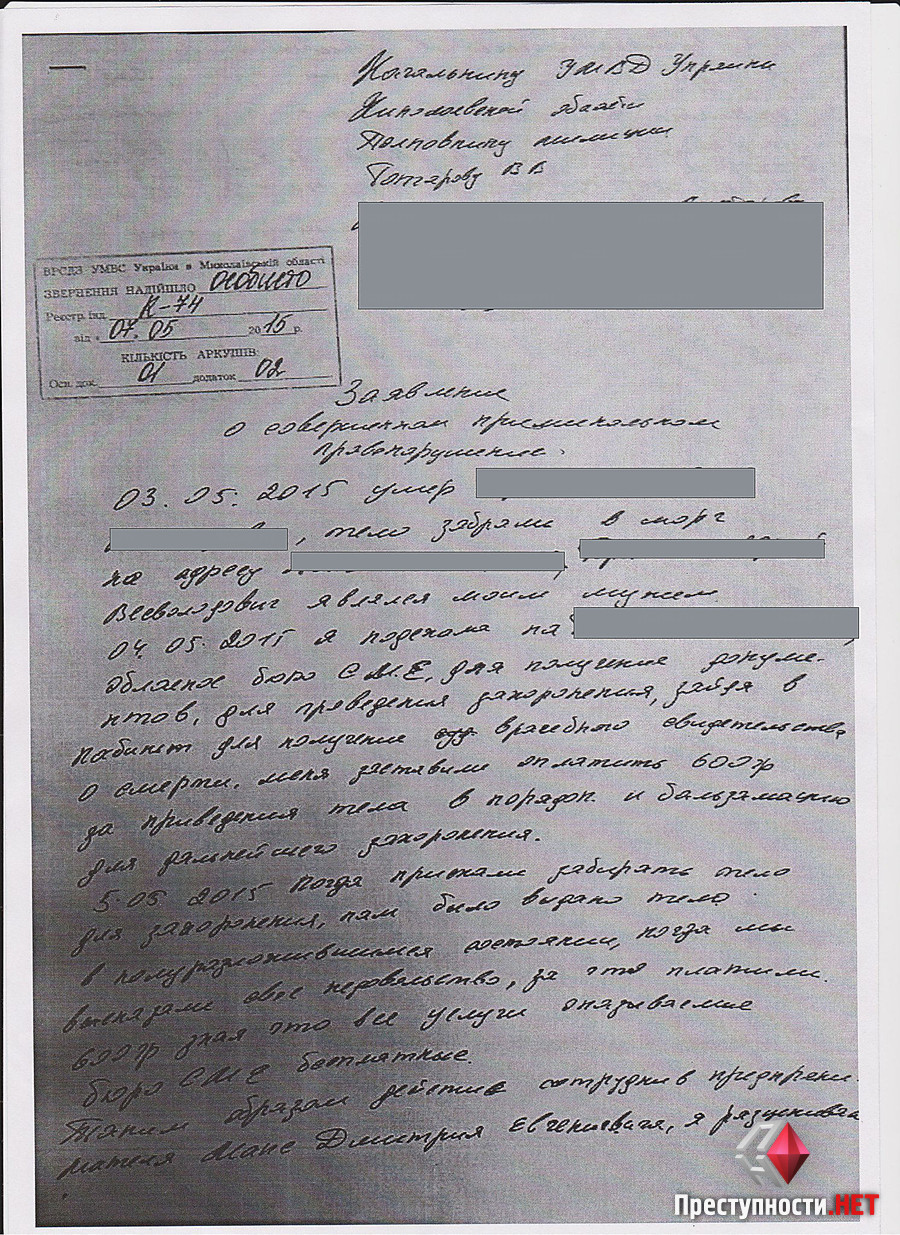 Начальнику УМВД Украины
Николаевской области
Полковнику милиции
Гончарову В В
ВРСДЗ УМВС України в Миколаївській області
ЗВЕРНЕННЯ НАДІЙШЛО особисто
Реєстр. інд. К-74
від « 07 » 05 2015 р.
КІЛЬКІСТЬ АРКУШІВ:
Осн. док. 01 додаток 02
Заявление
о совершенном криминальном
правонарушение.
03. 05. 2015 умер
, тело забрали в морг
на адресу
Всеволодович являлся моим мужем
04. 05. 2015 я подехала на
областное бюро С.М.Е, для получение докуме-
нтов, для проведения захоронения, зайдя в
кабинет для получение врачебного свидетельства
о смерти. меня заставили оплатить 600гр
за приведения тела в порядок. и бальзамацию
для дальнейшего захоронения.
5.05. 2015 когда приехали забирать тело
для захоронения, нам было выдано тело
в полуразложившимся состоянии, когда мы
высказали свое недовольство, за что платили
600гр зная что все услуги оказываемые
бюро СМЕ бесплатные.
Таким образом действие сотрудников предприни-
мателя Дмитрия Евгениевича, я расцениваю
Преступности.НЕТ